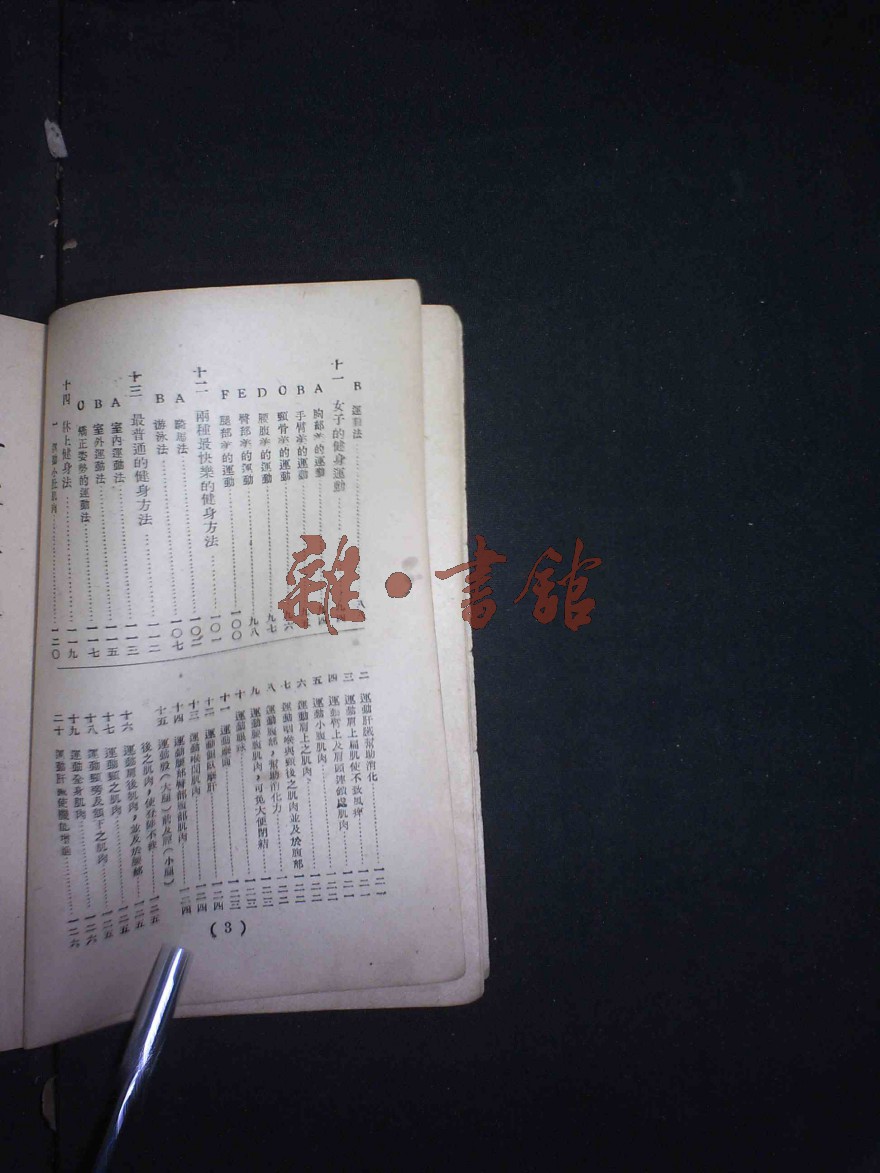 B 運動法
十一 女子的健身運動
A 胸部美的運動
B 手臂美的運動
C 頸骨美的運動 九六
D 腰腹美的運動 九七
E 臀部美的運動 九八
F 腿部美的運動 一〇〇
十二 兩種最快樂的健身方法 一〇一
A 一〇二
B 游泳法 一〇七
十三 最普通的健身方法 一一二
A 室內運動法 一一三
B 室外運動法 一一五
C 矯正姿勢的運動法 一一七
十四 床上健身法 一一九
一 一二〇
二 運動肝臟幫助消化 一二一
三 運動肩上扁肌使不致風痺 一二一
四 運動臂上及肩頭 肌肉 一二一
五 運動小腹肌肉 一二二
六 運動肩上之肌肉 一二二
七 運動咽喉與頸後之肌肉並及於胸部 一二二
八 運動腹部，幫助消化力 一二二
九 運動腰腹肌肉，可免大便閉結 一二三
十 運動眼球 一二三
十一 運動 一二三
十二 運動 一二四
十三 運動喉間肌肉 一二四
十四 運動腿部臀部腹部肌肉 一二四
十五 運動股（大腿）前及脛（小腿）
後之肌肉，使 一二五
十六 運動肩後肌肉，並及於胸部 一二五
十七 運動頸之肌肉 一二五
十八 運動頸旁及頷下之肌肉 一二六
十九 運動全身肌肉 一二六
二十 運動肝 使 一二六
(3)
雜·書館